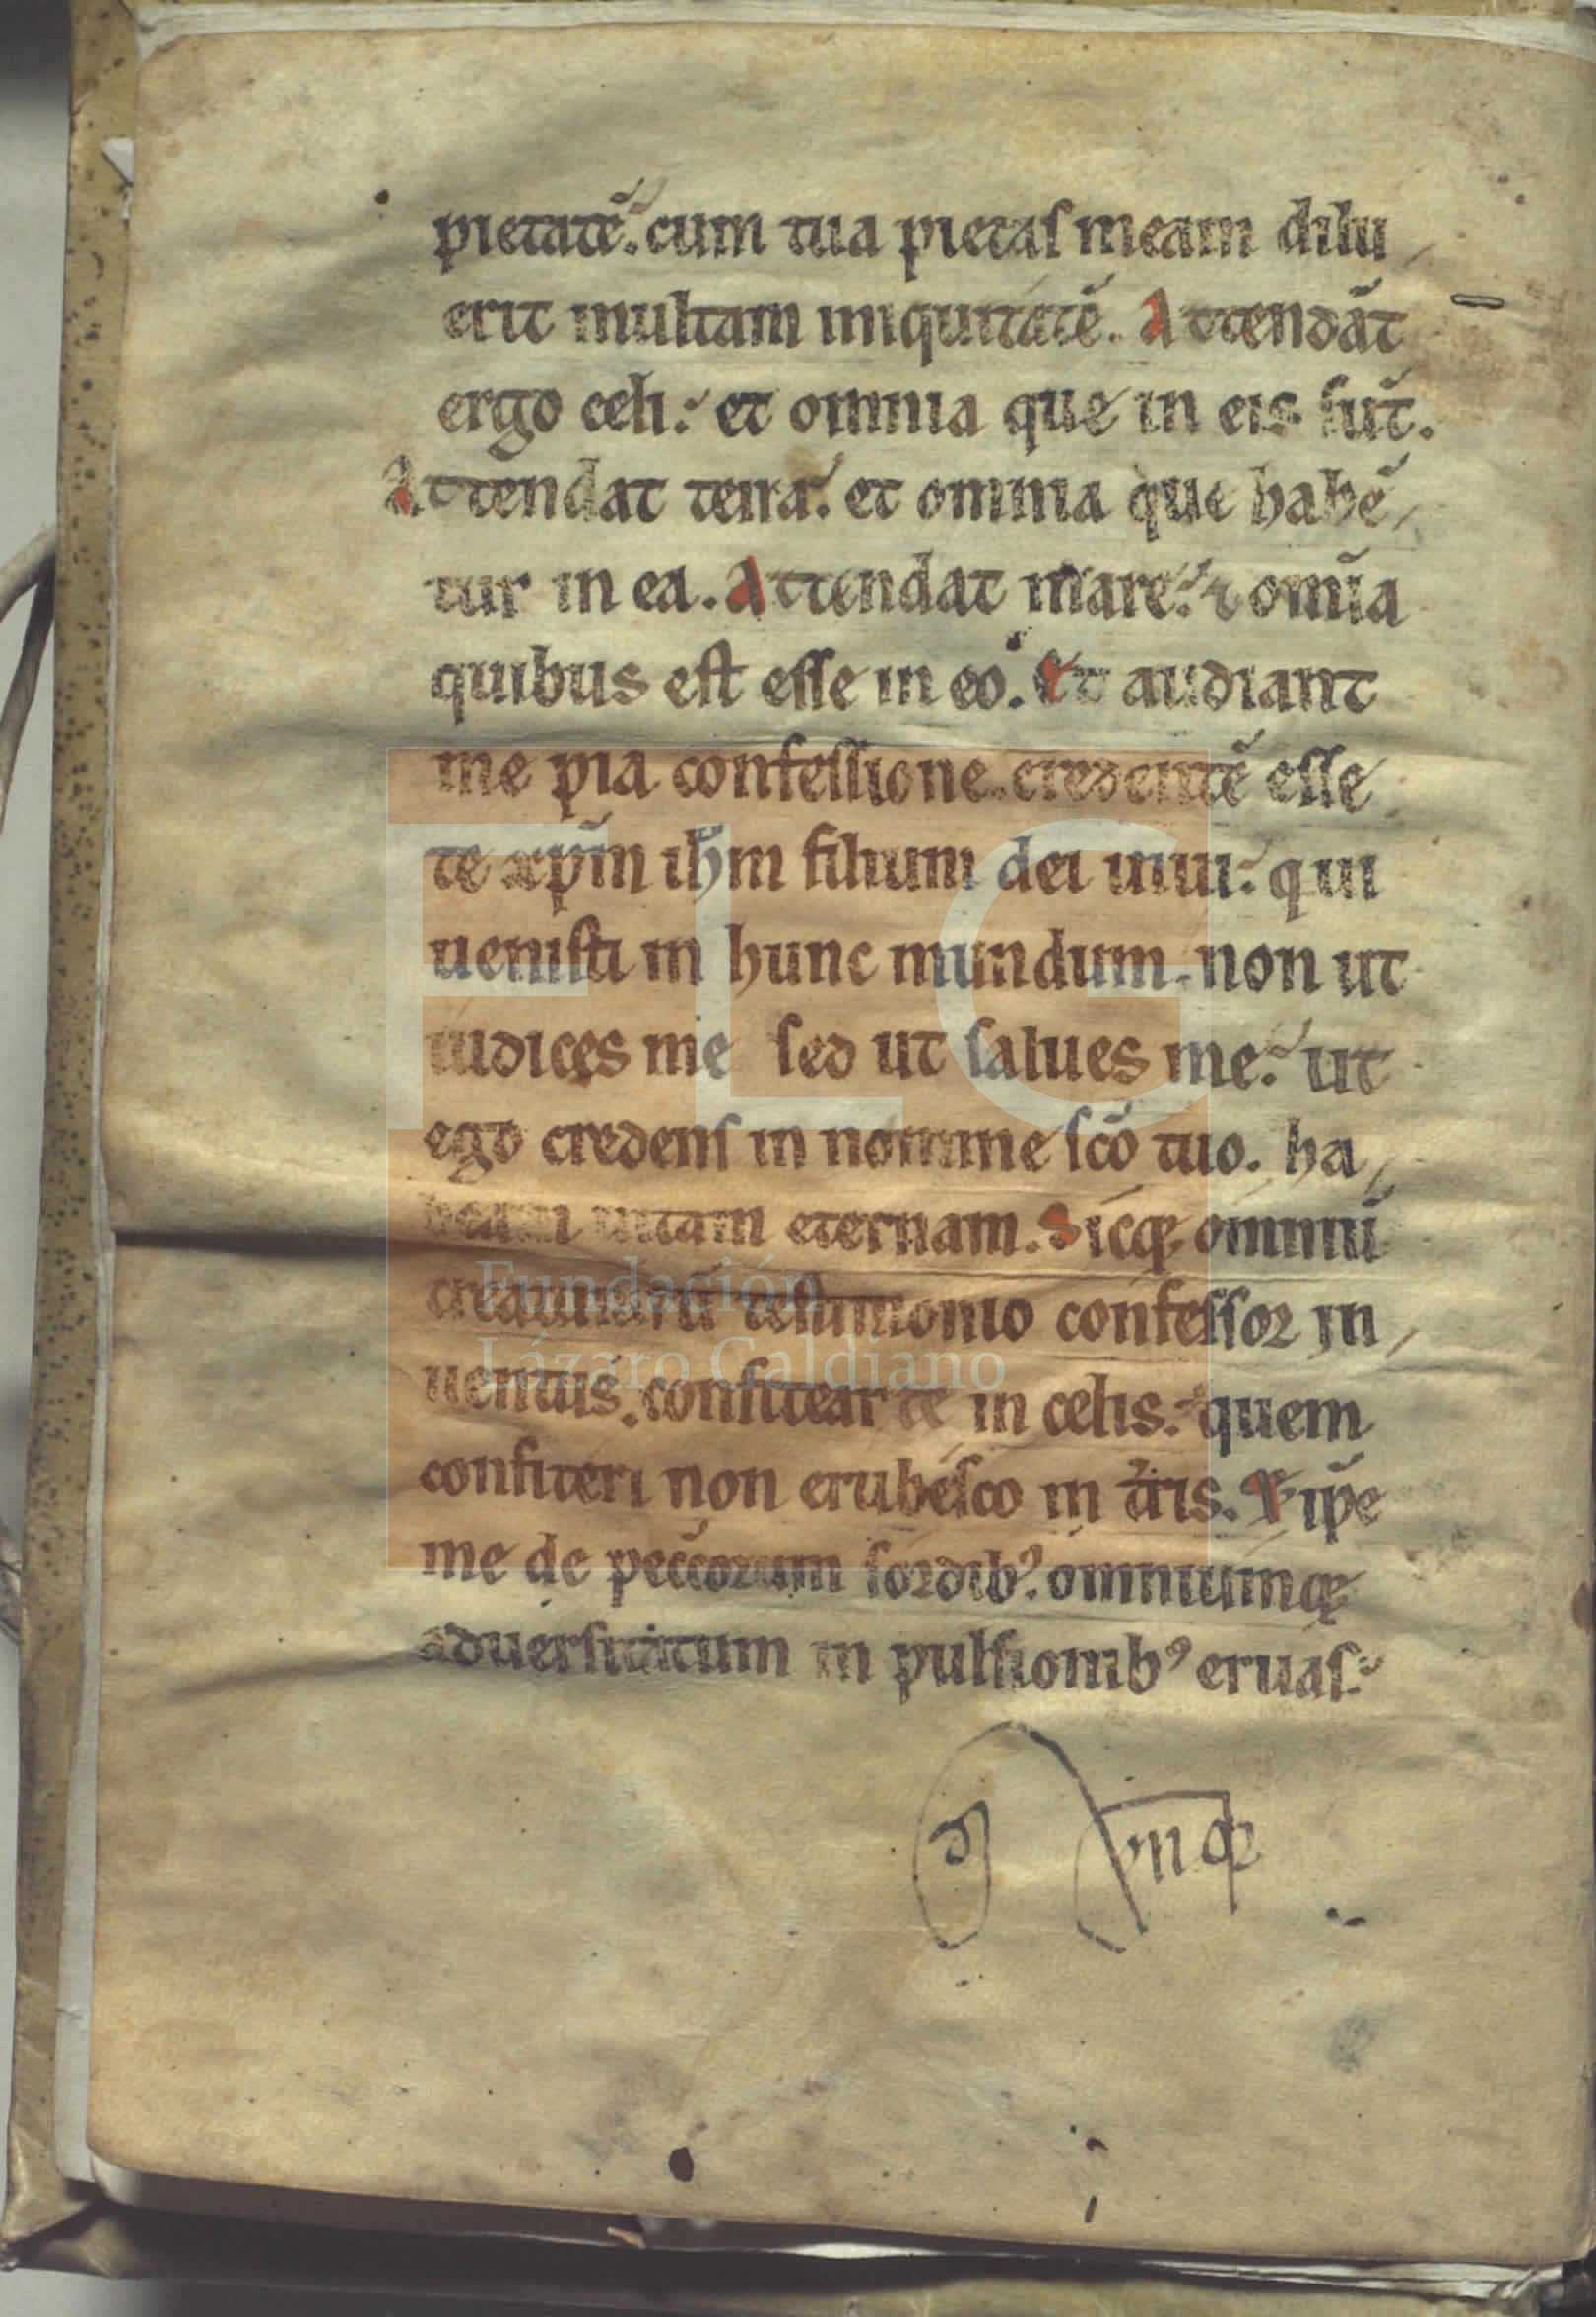 pietatē. cum tua pietas meam dilu
erit multam iniquitatē. Attendāt
ergo celi. et omnia que in eis sūt.
Attendat terra. et omnia que habē
tur in ea. Attendat mare. ⁊ om̄ia
quibus est esse in eo. Et audiant
me pia confessione. credentē esse
te xp̄m ih̄m filium dei uiui. qui
uenisti in hunc mundum. non ut
iudices me sed ut salues me. ut
ego credens in nomine sc̄o tuo. ha
beam uitam eternam. Sicq; omniū
creaturarū testimonio confessor in
uentus. confitear te in celis. quem
confiteri non erubesco in t̄ris. Eripe
me de peccorum sordib⁹. omniumq;
aduersitatum in pulsionib⁹ eruas.
FLG
Fundación
Lázaro Galdiano